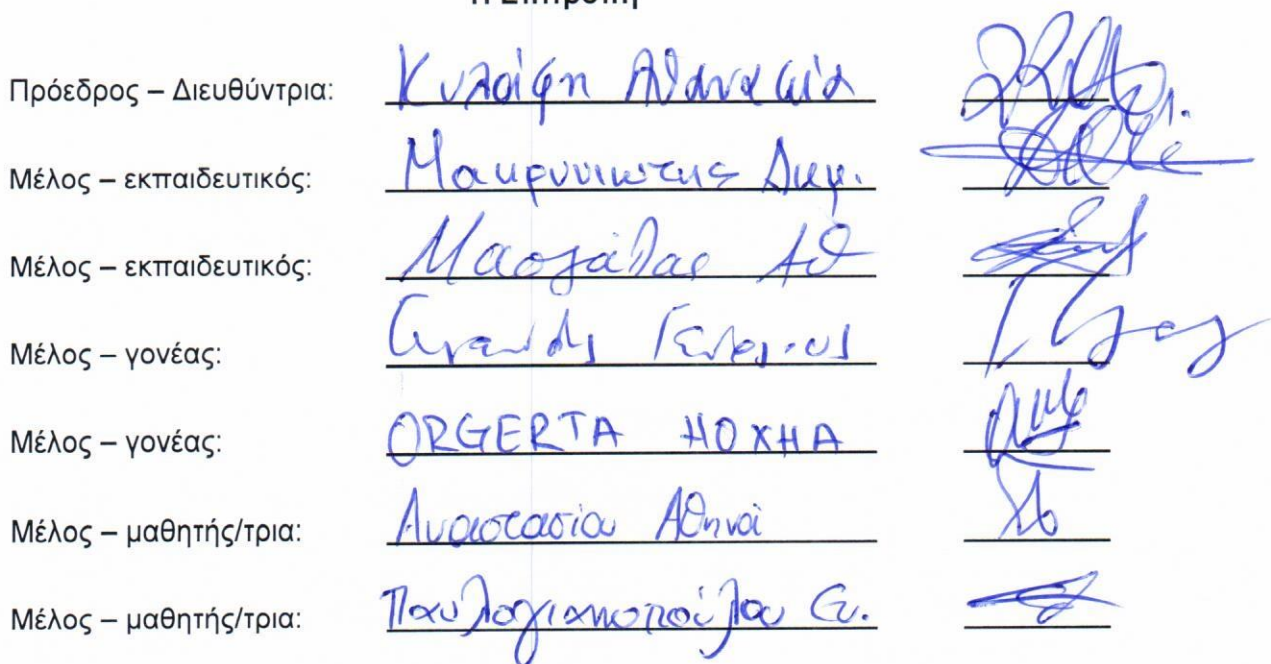 Η Επιτροπή
Πρόεδρος – Διευθύντρια: Κυλάφη Αθανασία
Μέλος – εκπαιδευτικός: Μακρυνιώτης Δημ.
Μέλος – εκπαιδευτικός: Μασγάλας Αθ
Μέλος – γονέας:
Μέλος – γονέας: ORGERTA HOXHA
Μέλος – μαθητής/τρια: Αναστασίου Αθηνά
Μέλος – μαθητής/τρια: Παυλογιαννοπούλου Ευ.